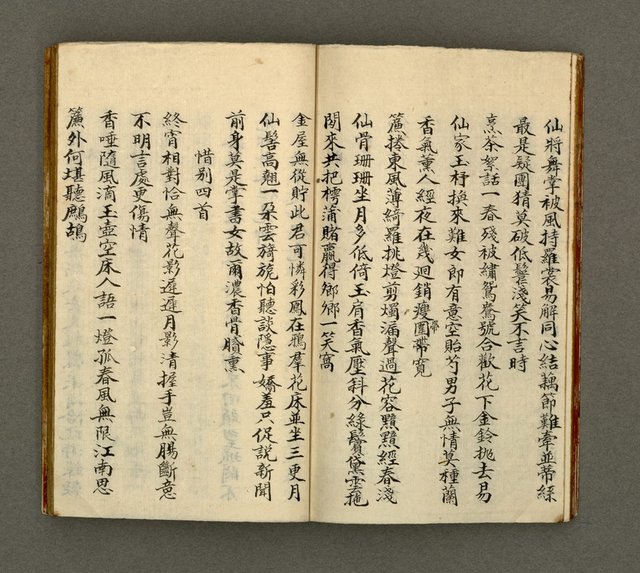 仙將舞掌被風持羅裳易解同心結藕節難牽並蒂絲
最是疑團猜莫破低鬟淺笑不言時
烹茶絮話一春殘被繡鴛鴦號合歡花下金鈴挑去易
仙家玉杵換來難女郎有意空貽芍男子無情莫種蘭
香氣薰人經夜在幾廻銷瘦圍帶寬
簾捲東風薄綺羅挑燈剪燭漏聲過花容黯黯經春淺
仙骨珊珊坐月多低倚玉肩香氣壓斜分綠鬢黛雲拖
閒來共把樗蒲賭贏得鄉鄉一笑窩
金屋無從貯此君可憐彩鳳在鴉羣花床並坐三更月
仙髻高翹一朶雲旖旎怕聽談隱事嬌羞只促説新聞
前身莫是掌書女故爾濃香骨臍熏
惜別四首
終宵相對恰無聲花影遲遲月影清握手豈無腸斷意
不明言處更傷情
香唾隨風滴玉壺空床人語一燈孤春風無限江南思
簾外何堪聽鷓鴣